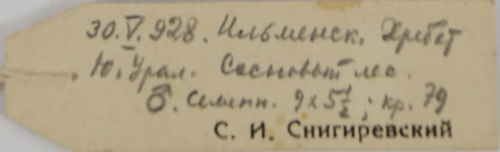 30.V.928. Ильменск. Хребет
Ю. Урал. Сосновый лес.
♂. Семенн. 9 x 5 1/2; кр. 79
С. И. Снигиревский